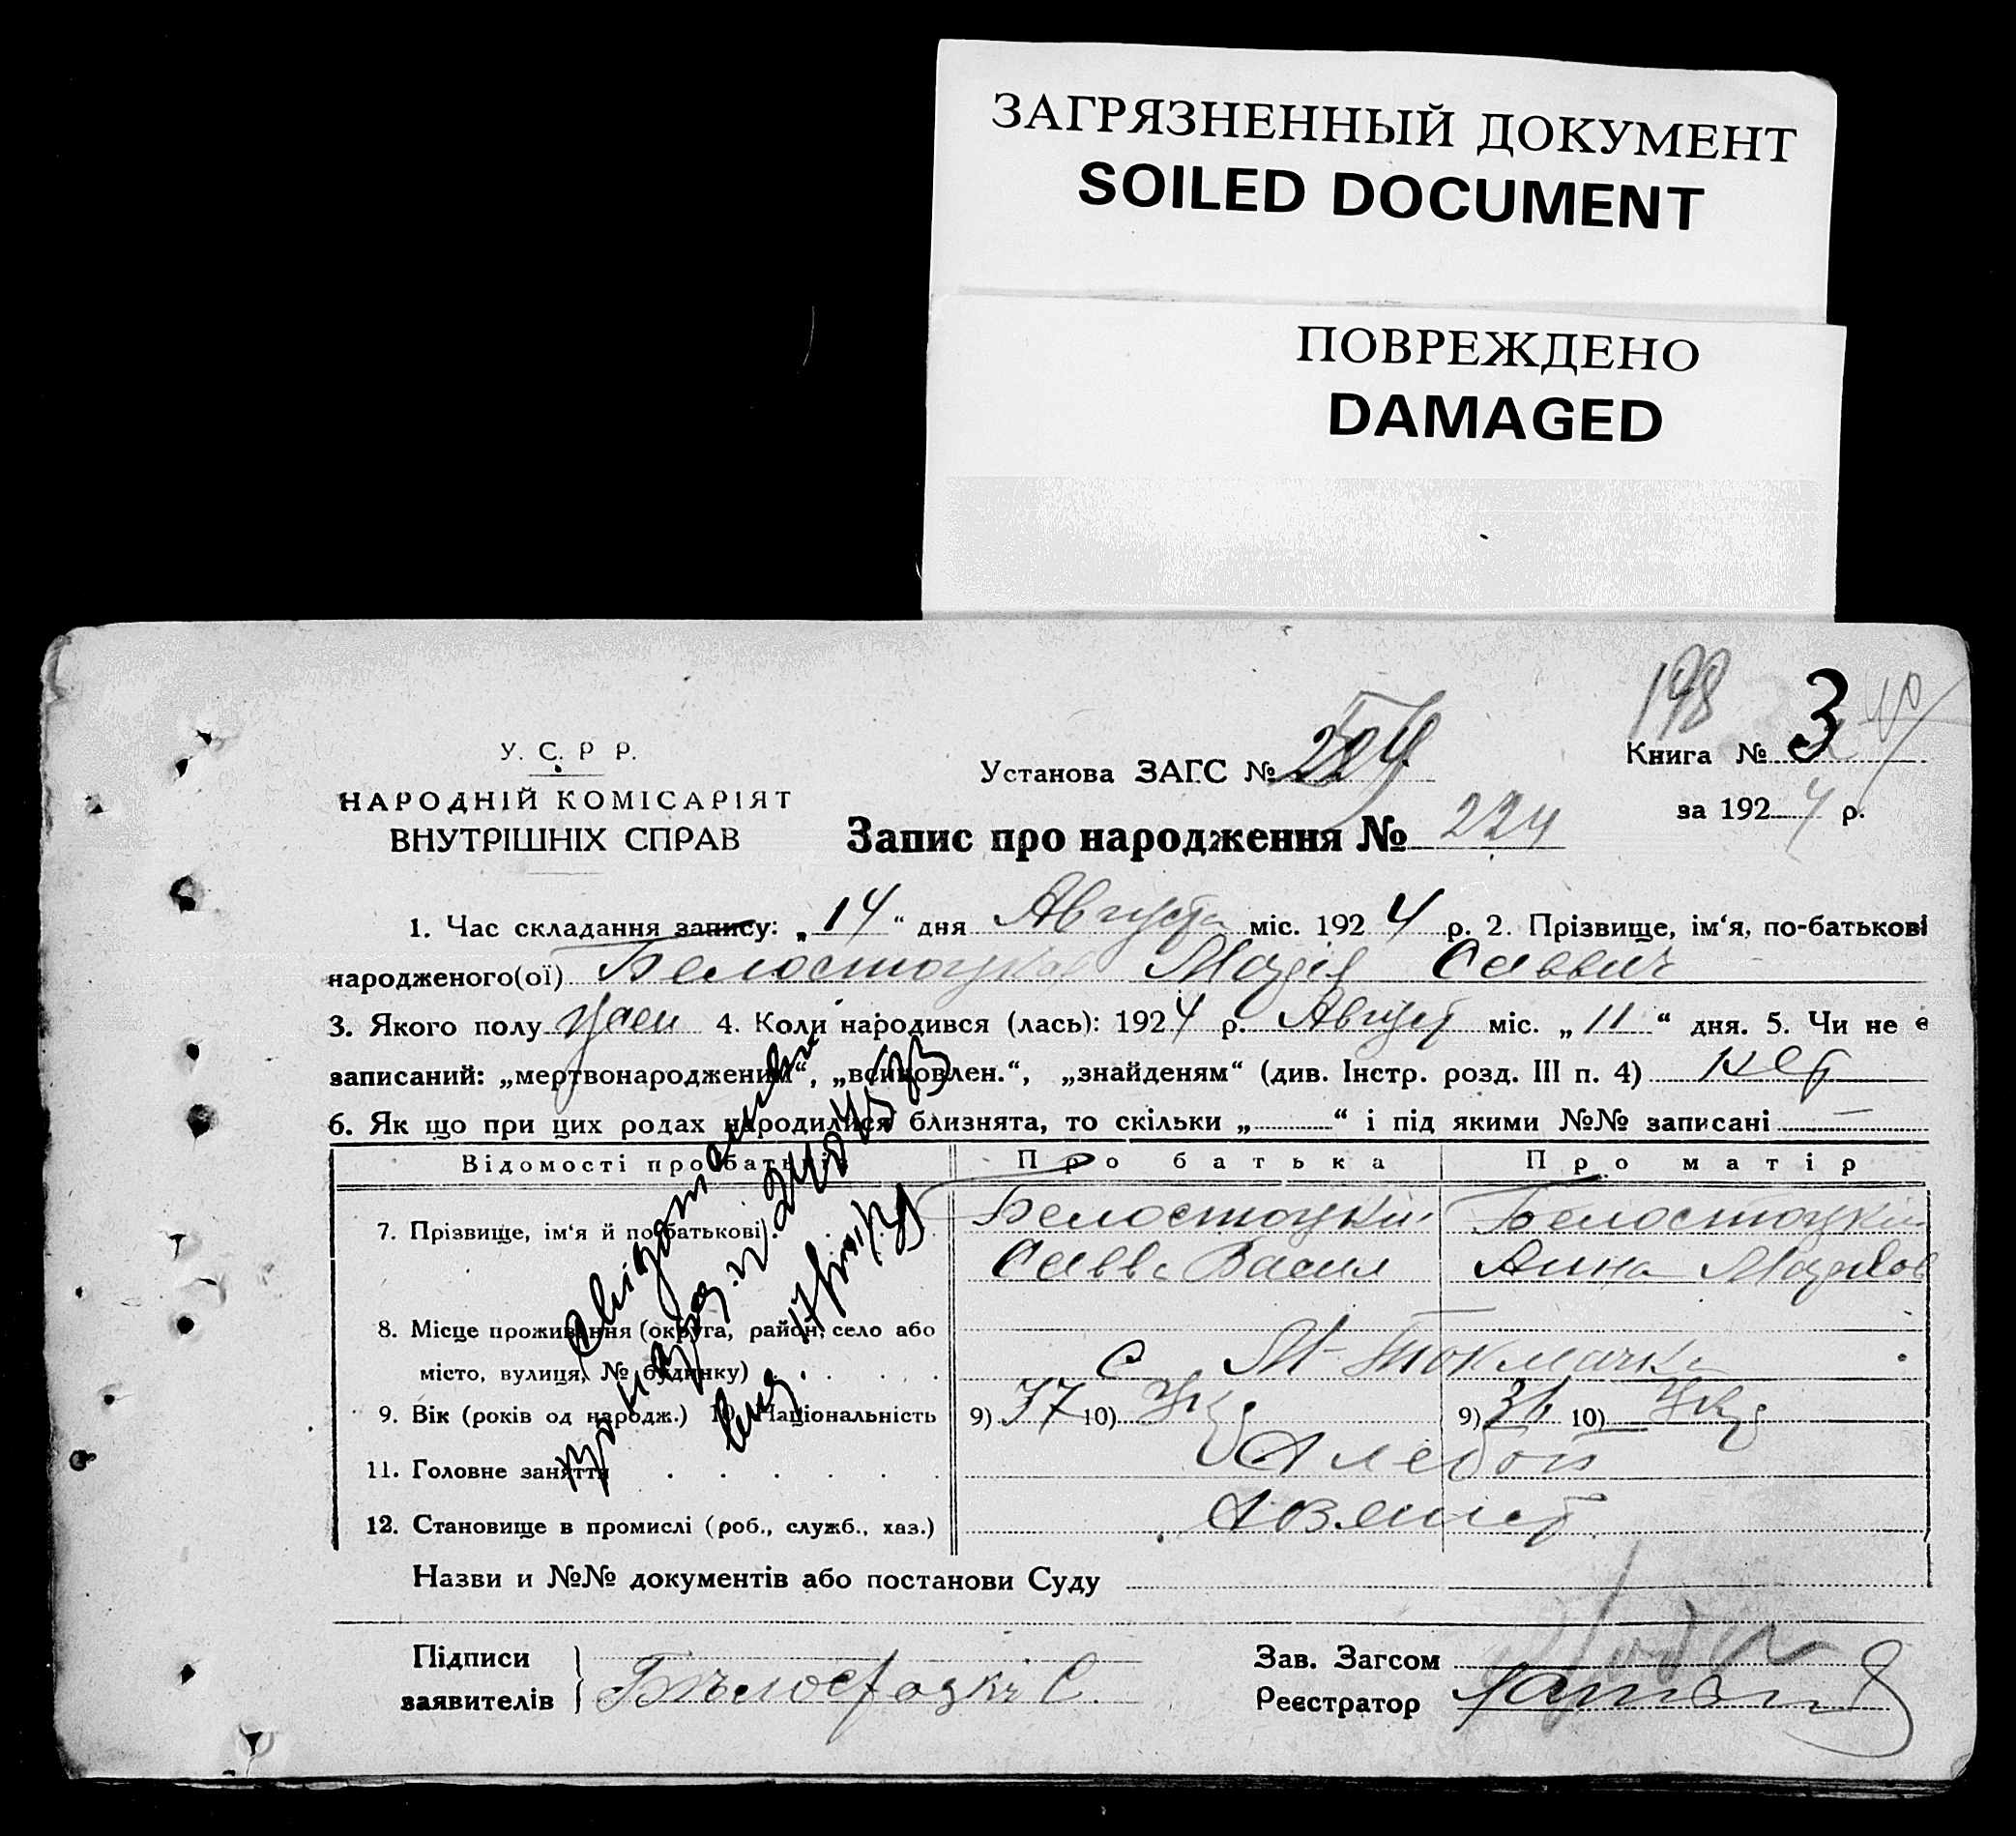 ЗАГРЯЗНЕННЫЙ ДОКУМЕНТ
SOILED DOCUMENT
ПОВРЕЖДЕНО
DAMAGED
198
У. С. Р Р.
НАРОДНІЙ КОМІСАРІЯТ
ВНУТРІШНІХ СПРАВ
Установа ЗАГС №
Книга № 3
за 1924 р.
Запис про народження № 234
1. Час складання запису: „14“ дня Августа міс. 1924 р. 2. Прізвище, ім‘я, по-батькові
народженого(ої) Белостоцкий Саввич
3. Якого полу 4. Коли народився (лась): 1924 р. Август міс. „11“ дня. 5. Чи не є
записаний: „мертвонародженим“, „всиновлен.“, „знайденям“ (див. Інстр. розд. III п. 4) нет
6. Як що при цих родах народилися близнята, то скільки „ “ і під якими №№ записані —
Відомості про батьків Про батька Про матір
7. Прізвище, ім‘я й по-батькові) Белостоцкий Белостоцкий
Савва Васил Анна
8. Місце проживання (округа, район, село або
місто, вулиця, № будинку) с М-Токмачка
9. Вік (років од народж.) 10. Національність 9) 37 10) Укр 9) 36 10) Укр
11. Головне заняття Хлебоп
12. Становище в промислі (роб., служб., хаз.) Хозяист
Назви и №№ документів або постанови Суду
Підписи
заявителів Бѣлостоцкі С.
Зав. Загсом
Реєстратор